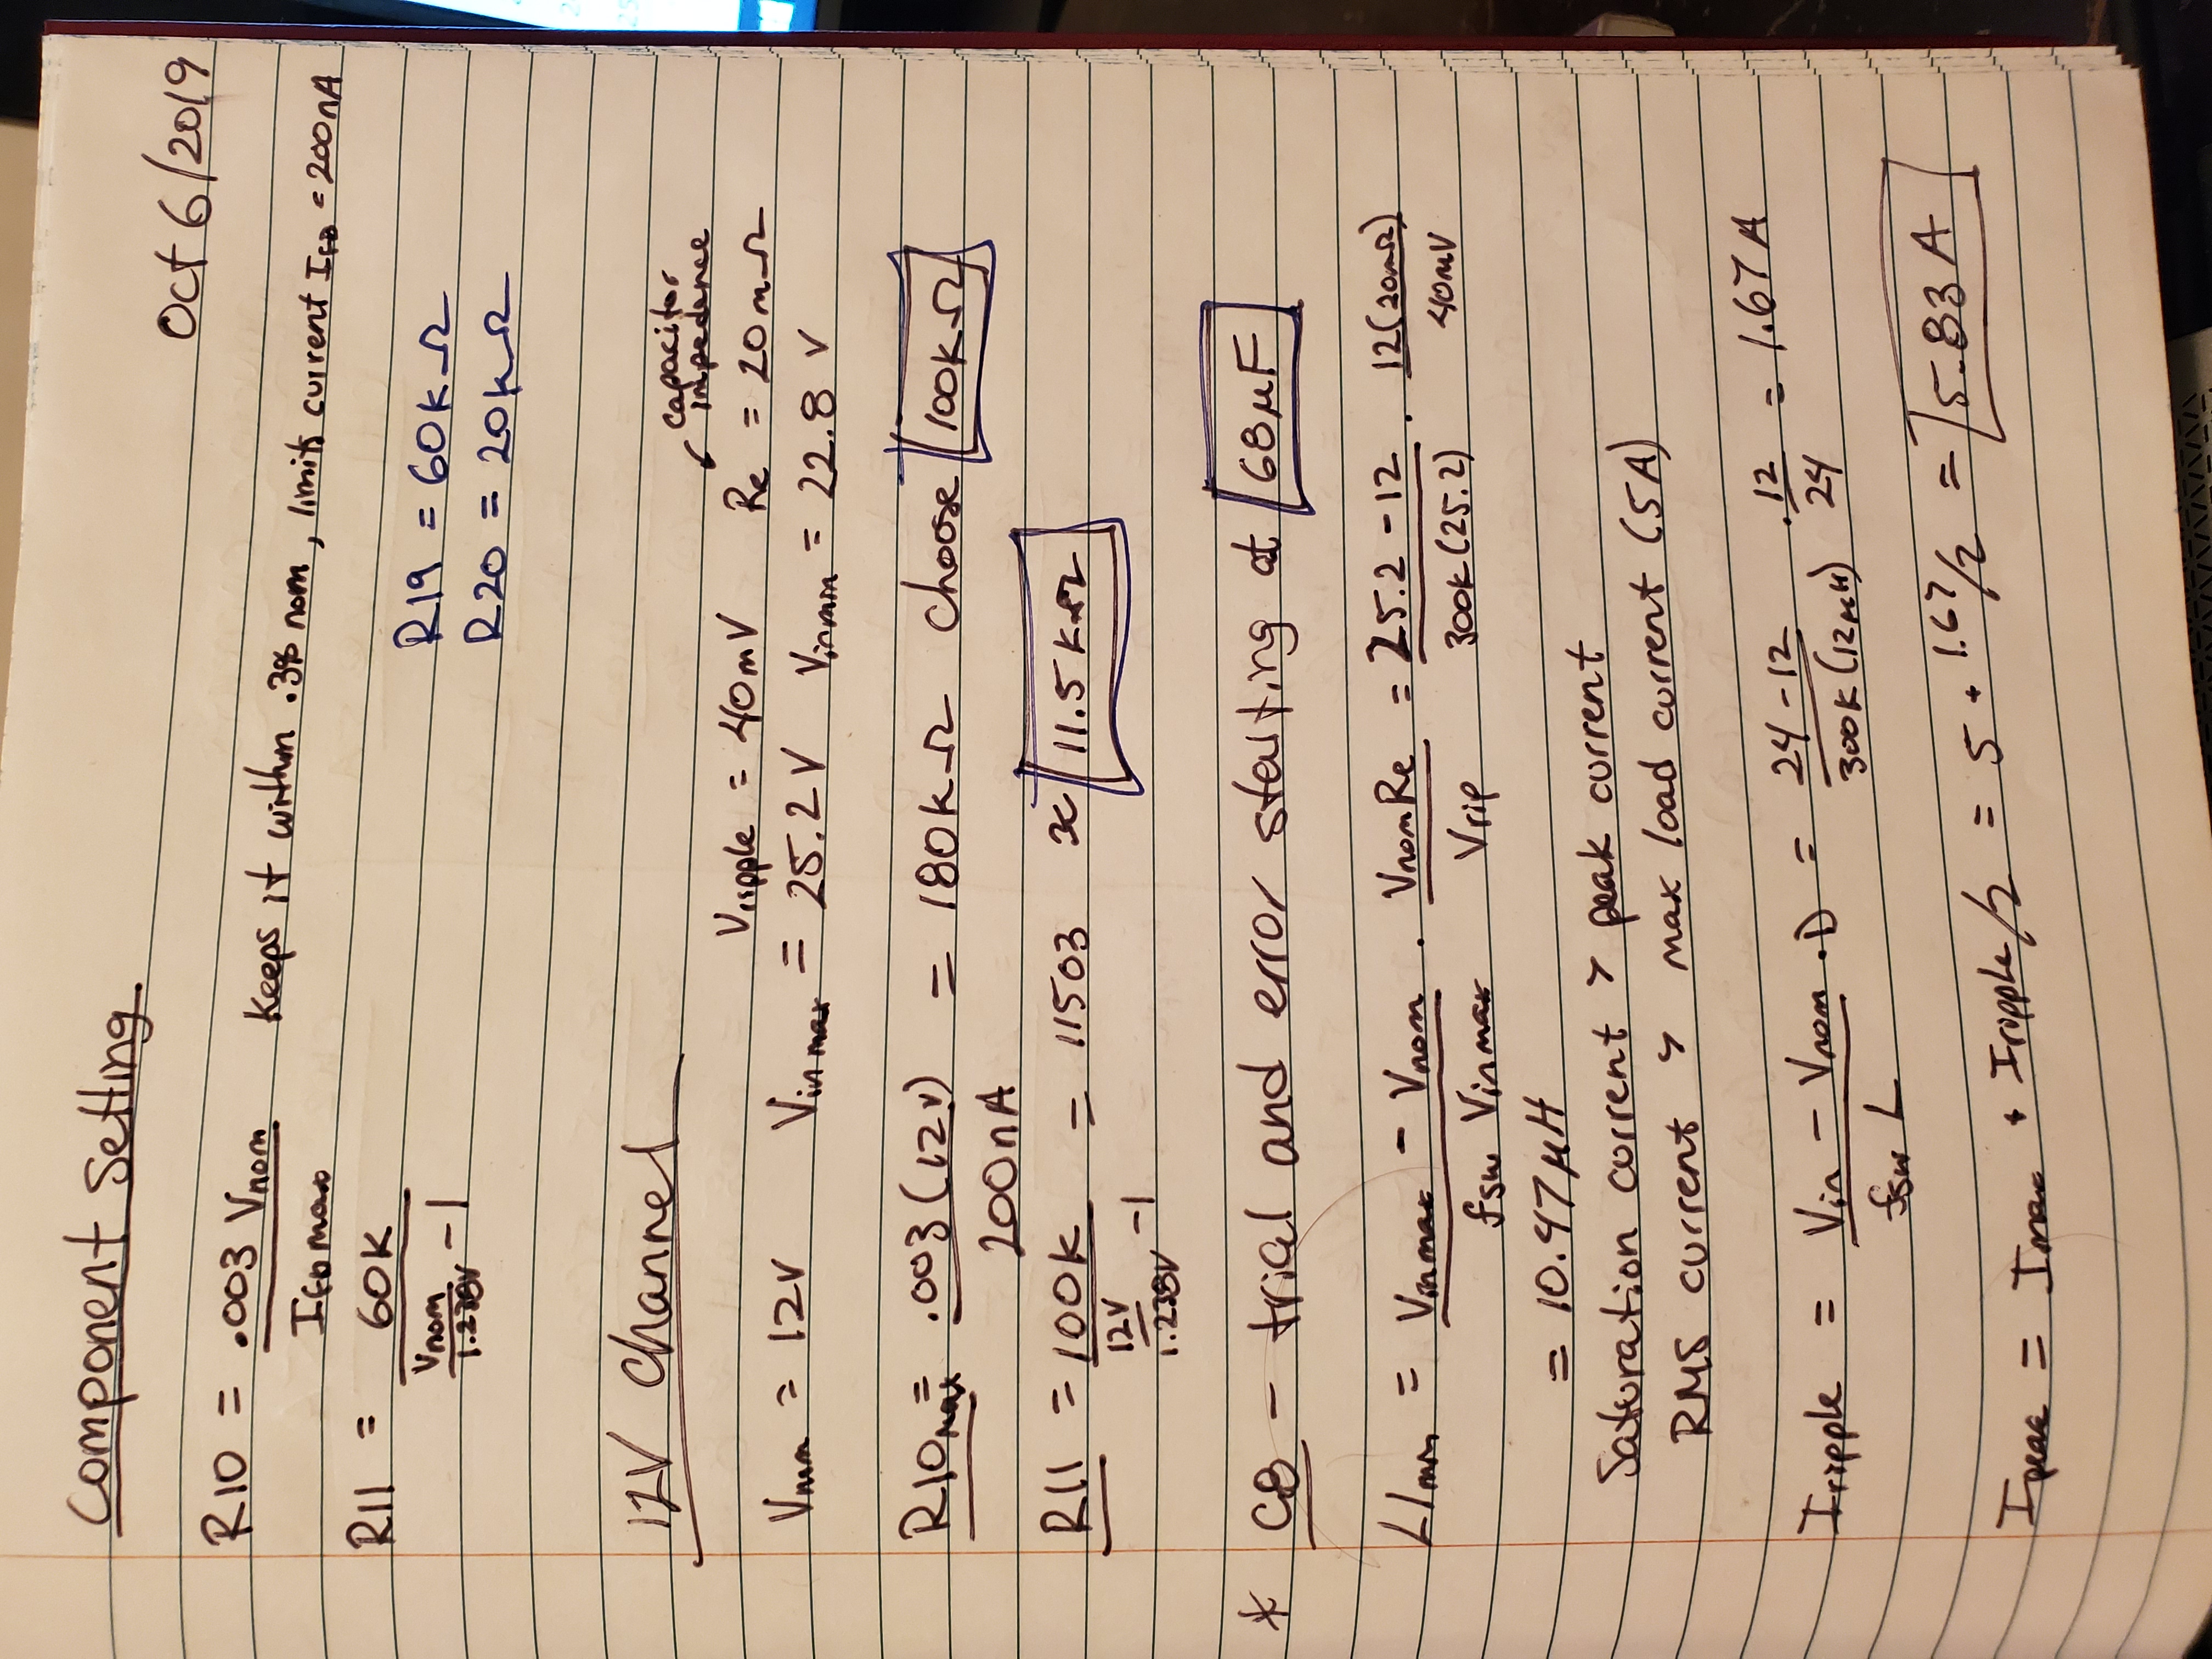 Component Setting
Oct 6/2019
R10 = .003 Vnom / IFB max Keeps it within .3% nom, limits current IFB = 200nA
R11 = 60K / (Vnom / 1.238V - 1)
R19 = 60kΩ
R20 = 20kΩ
12V Channel
capacitor
impedence
Vripple = 40mV Re = 20mΩ
Vnom = 12V Vin max = 25.2V Vinmin = 22.8 V
R10max = .003(12V) / 200nA = 180kΩ Choose 100kΩ
R11 = 100K / (12V / 1.238V - 1) = 11503 ≈ 11.5kΩ
* C8 - trial and error starting at 68µF
L1min = Vinmax - Vnom / fsw Vinmax · VnomRe / Vrip = 25.2 - 12 / 300k(25.2) · 12(20mΩ) / 40mV
= 10.47µH
Saturation current > peak current
RMS current > max load current (5A)
Iripple = Vin - Vnom / fsw L · D = 24 - 12 / 300k(12µH) · 12 / 24 = 1.67 A
Ipeak = Imax + Iripple/2 = 5 + 1.67/2 = 5.83 A